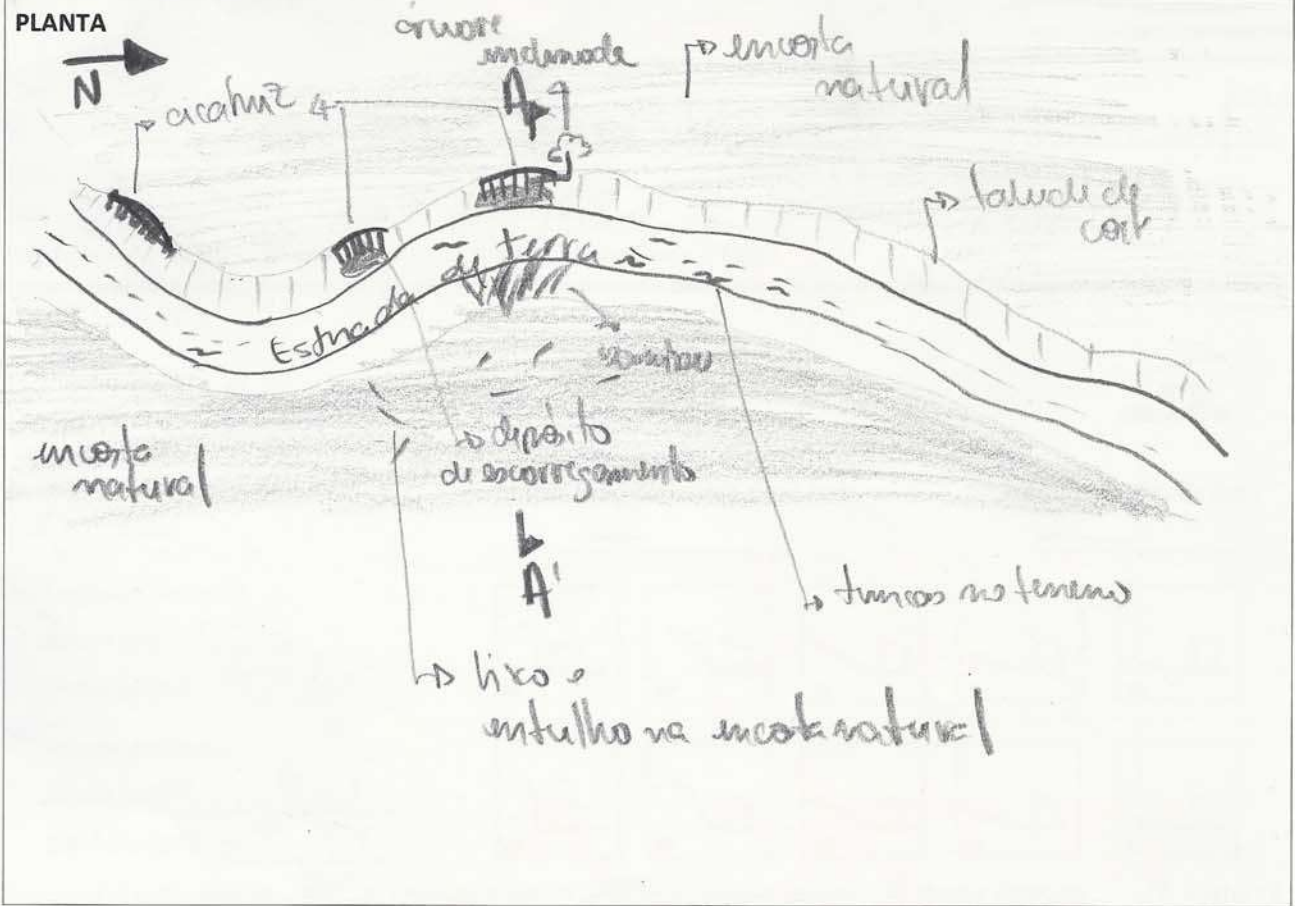 PLANTA
N
árvore
inclinada
A
encosta
natural
4
talude de
Estrada de terra
encosta
natural
depósito
de escorregamento
A'
no terreno
lixo e
entulho na encosta natural